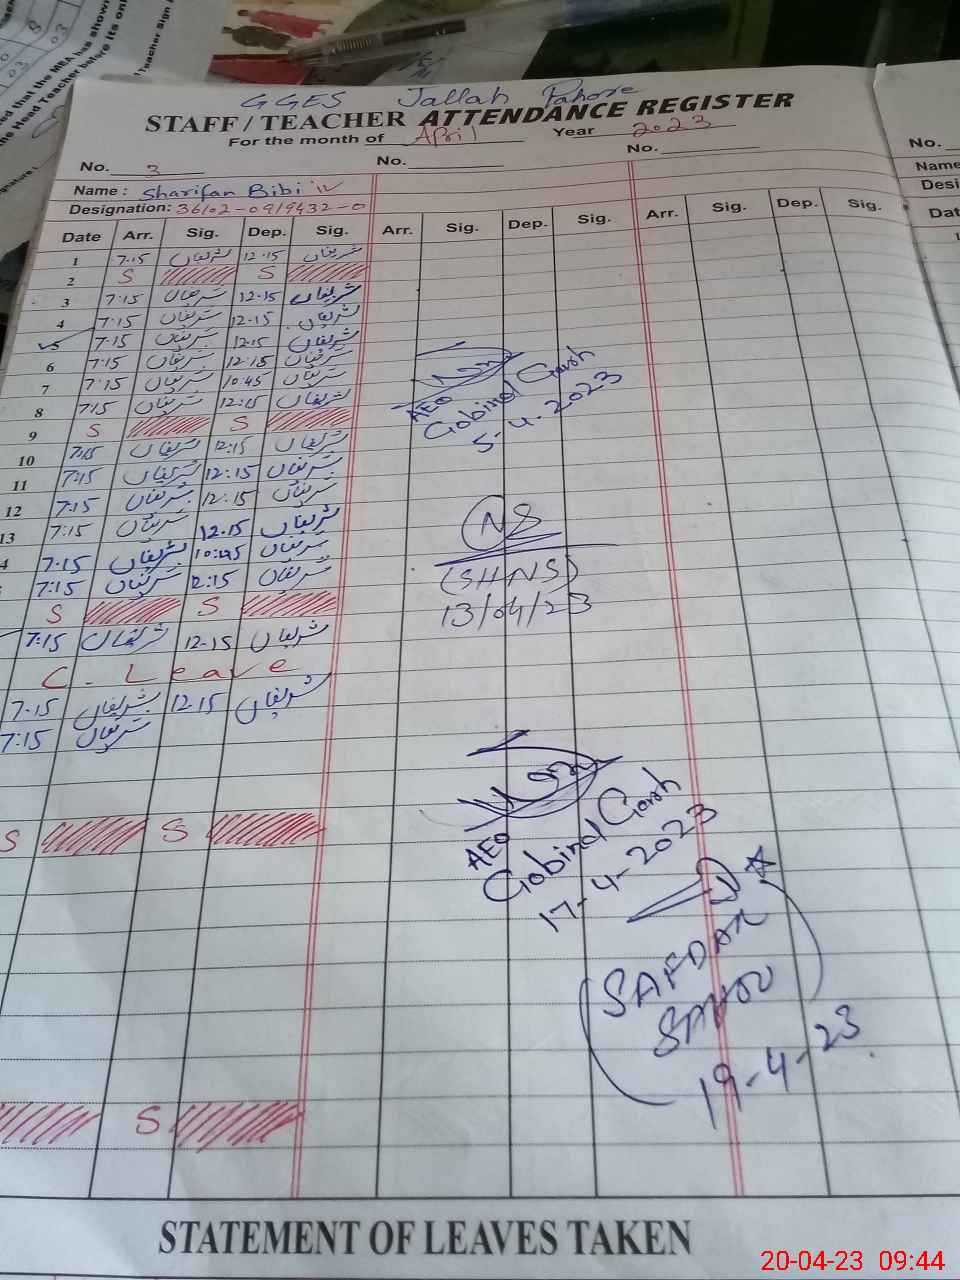 GGES Jallah Pahore
STAFF / TEACHER ATTENDANCE REGISTER
For the month of April Year 2023
No. 3 No. No. No.
Name : Sharifan Bibi Name
Designation: 36102-0919432-0
Date Arr. Sig. Dep. Sig. Arr. Sig. Dep. Sig. Arr. Sig. Dep. Sig.
1 7:15 شریفاں 12:15 شریفاں
2 S S
3 7:15 شریفاں 12:15 شریفاں
4 7:15 شریفاں 12:15 شریفاں
5 7:15 شریفاں 12:15 شریفاں
6 7:15 شریفاں 12:15 شریفاں
7 7:15 شریفاں 10:45 شریفاں
8 7:15 شریفاں 12:15 شریفاں
9 S S
10 7:15 شریفاں 12:15 شریفاں
11 7:15 شریفاں 12:15 شریفاں
12 7:15 شریفاں 12:15 شریفاں
13 7:15 شریفاں 12:15 شریفاں
4 7:15 شریفاں 10:45 شریفاں
7:15 شریفاں 12:15 شریفاں
S S
7:15 شریفاں 12:15 شریفاں
C. Leave
7:15 شریفاں 12:15 شریفاں
7:15 شریفاں
S S
S
AEO
Gobind Garh
5-4-2023
NS
(SHNS)
13/04/23
AEO
Gobind Garh
17-4-2023
SAFDAR
19-4-23
STATEMENT OF LEAVES TAKEN
20-04-23 09:44